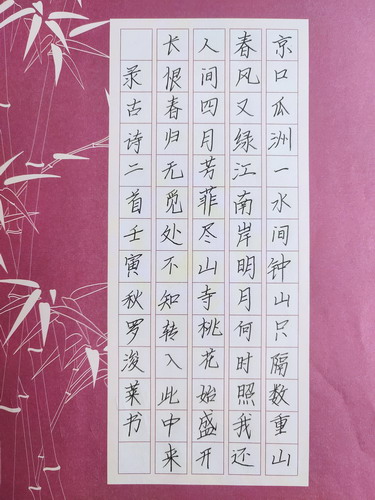 京口瓜洲一水间钟山只隔数重山
春风又绿江南岸明月何时照我还
人间四月芳菲尽山寺桃花始盛开
长恨春归无觅处不知转入此中来
录古诗二首壬寅秋罗浚莱书